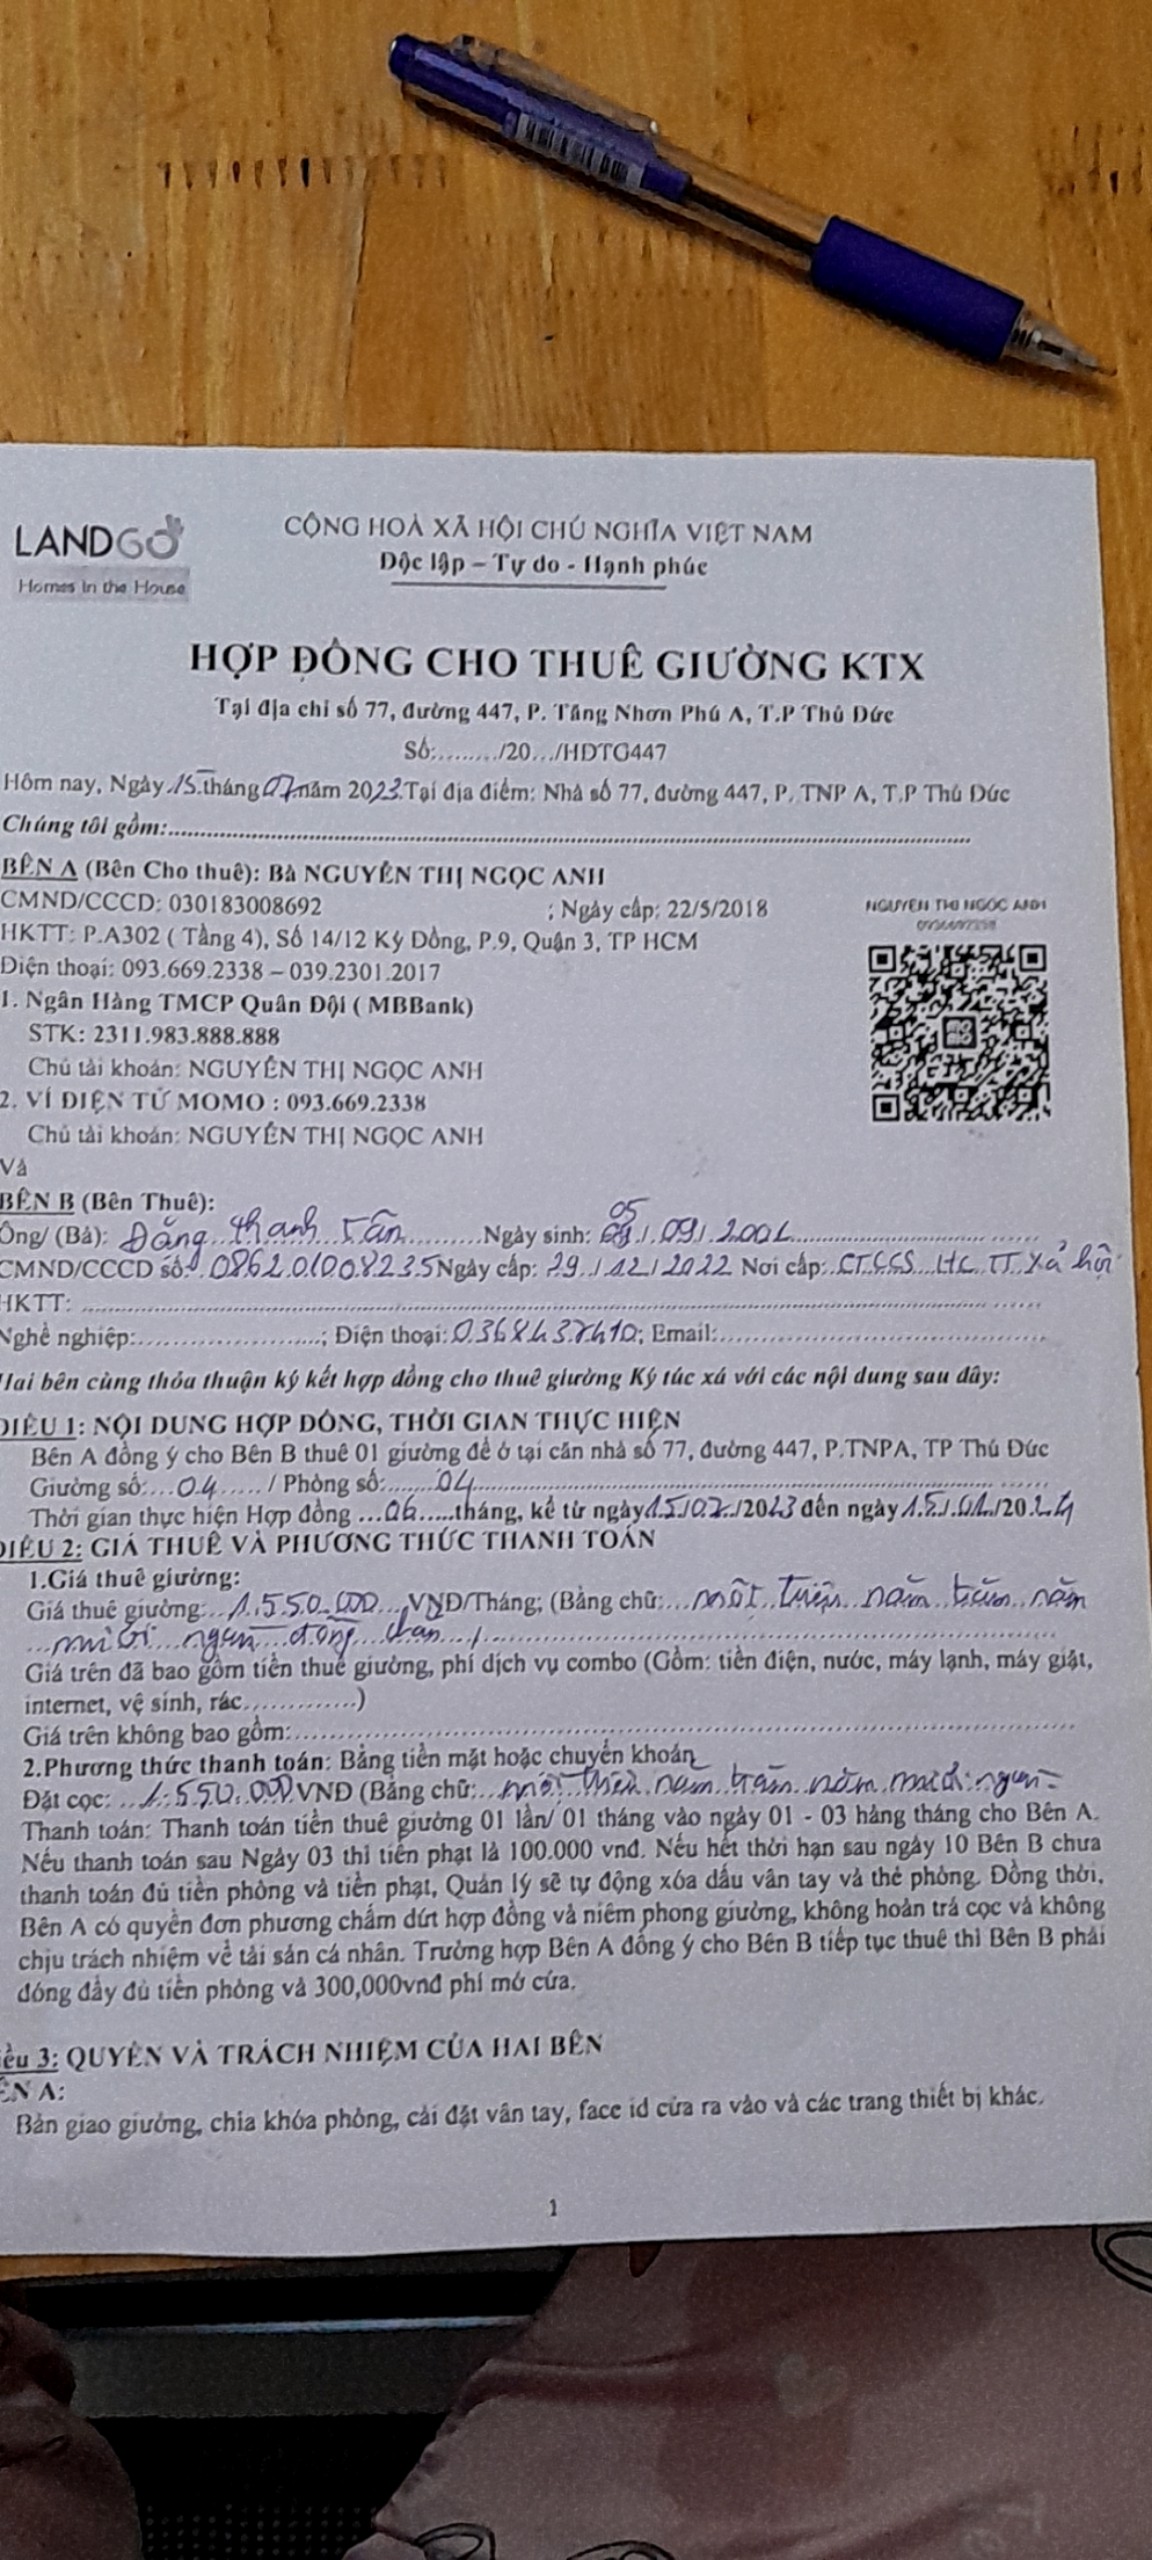 LANDGO
Homes in the House
CỘNG HOÀ XÃ HỘI CHỦ NGHĨA VIỆT NAM
Độc lập – Tự do - Hạnh phúc
HỢP ĐỒNG CHO THUÊ GIƯỜNG KTX
Tại địa chỉ số 77, đường 447, P. Tăng Nhơn Phú A, T.P Thủ Đức
Số:......../20.../HDTG447
Hôm nay, Ngày 15 tháng 07 năm 2023 Tại địa điểm: Nhà số 77, đường 447, P. TNP A, T.P Thủ Đức
Chúng tôi gồm:
BÊN A (Bên Cho thuê): Bà NGUYỄN THỊ NGỌC ANH
CMND/CCCD: 030183008692 ; Ngày cấp: 22/5/2018
NGUYEN THI NGOC ANH
HKTT: P.A302 ( Tầng 4), Số 14/12 Kỳ Đồng, P.9, Quận 3, TP HCM
Điện thoại: 093.669.2338 – 039.2301.2017
1. Ngân Hàng TMCP Quân Đội ( MBBank)
STK: 2311.983.888.888
Chủ tài khoản: NGUYỄN THỊ NGỌC ANH
2. VÍ ĐIỆN TỬ MOMO : 093.669.2338
Chủ tài khoản: NGUYỄN THỊ NGỌC ANH
Và
BÊN B (Bên Thuê):
Ông/ (Bà): Đặng Thanh Tân Ngày sinh: 05/09/2001
CMND/CCCD số: 086201008235 Ngày cấp: 29/12/2022 Nơi cấp: CTCCS HC TT Xã hội
HKTT:
Nghề nghiệp:....................; Điện thoại: ; Email:
Hai bên cùng thỏa thuận ký kết hợp đồng cho thuê giường Ký túc xá với các nội dung sau đây:
ĐIỀU 1: NỘI DUNG HỢP ĐỒNG, THỜI GIAN THỰC HIỆN
Bên A đồng ý cho Bên B thuê 01 giường để ở tại căn nhà số 77, đường 447, P.TNPA, TP Thủ Đức
Giường số: 04 / Phòng số: 04
Thời gian thực hiện Hợp đồng 06 tháng, kể từ ngày 15/07/2023 đến ngày 15/01/2024
ĐIỀU 2: GIÁ THUÊ VÀ PHƯƠNG THỨC THANH TOÁN
1.Giá thuê giường:
Giá thuê giường: 1.550.000 VNĐ/Tháng; (Bằng chữ: một triệu năm trăm năm
mươi ngàn đồng chẵn ./
Giá trên đã bao gồm tiền thuê giường, phí dịch vụ combo (Gồm: tiền điện, nước, máy lạnh, máy giặt,
internet, vệ sinh, rác..............)
Giá trên không bao gồm:
2.Phương thức thanh toán: Bằng tiền mặt hoặc chuyển khoản
Đặt cọc: 1.550.000 VNĐ (Bằng chữ: một triệu năm trăm năm mươi ngàn
Thanh toán: Thanh toán tiền thuê giường 01 lần/ 01 tháng vào ngày 01 - 03 hàng tháng cho Bên A.
Nếu thanh toán sau Ngày 03 thì tiền phạt là 100.000 vnđ. Nếu hết thời hạn sau ngày 10 Bên B chưa
thanh toán đủ tiền phòng và tiền phạt, Quản lý sẽ tự động xóa dấu vân tay và thẻ phòng. Đồng thời,
Bên A có quyền đơn phương chấm dứt hợp đồng và niêm phong giường, không hoàn trả cọc và không
chịu trách nhiệm về tài sản cá nhân. Trường hợp Bên A đồng ý cho Bên B tiếp tục thuê thì Bên B phải
đóng đầy đủ tiền phòng và 300,000vnđ phí mở cửa.
ều 3: QUYỀN VÀ TRÁCH NHIỆM CỦA HAI BÊN
ÊN A:
Bàn giao giường, chìa khóa phòng, cài đặt vân tay, face id cửa ra vào và các trang thiết bị khác.
1